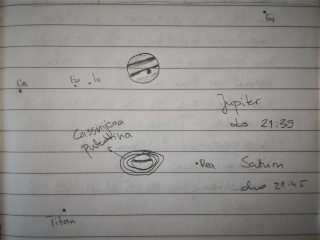 Ga
Ca
Eu
Io
Jupiter
do 21:39
Cassinijeva
pukotina
Rea
Saturn
do 21:45
Titan